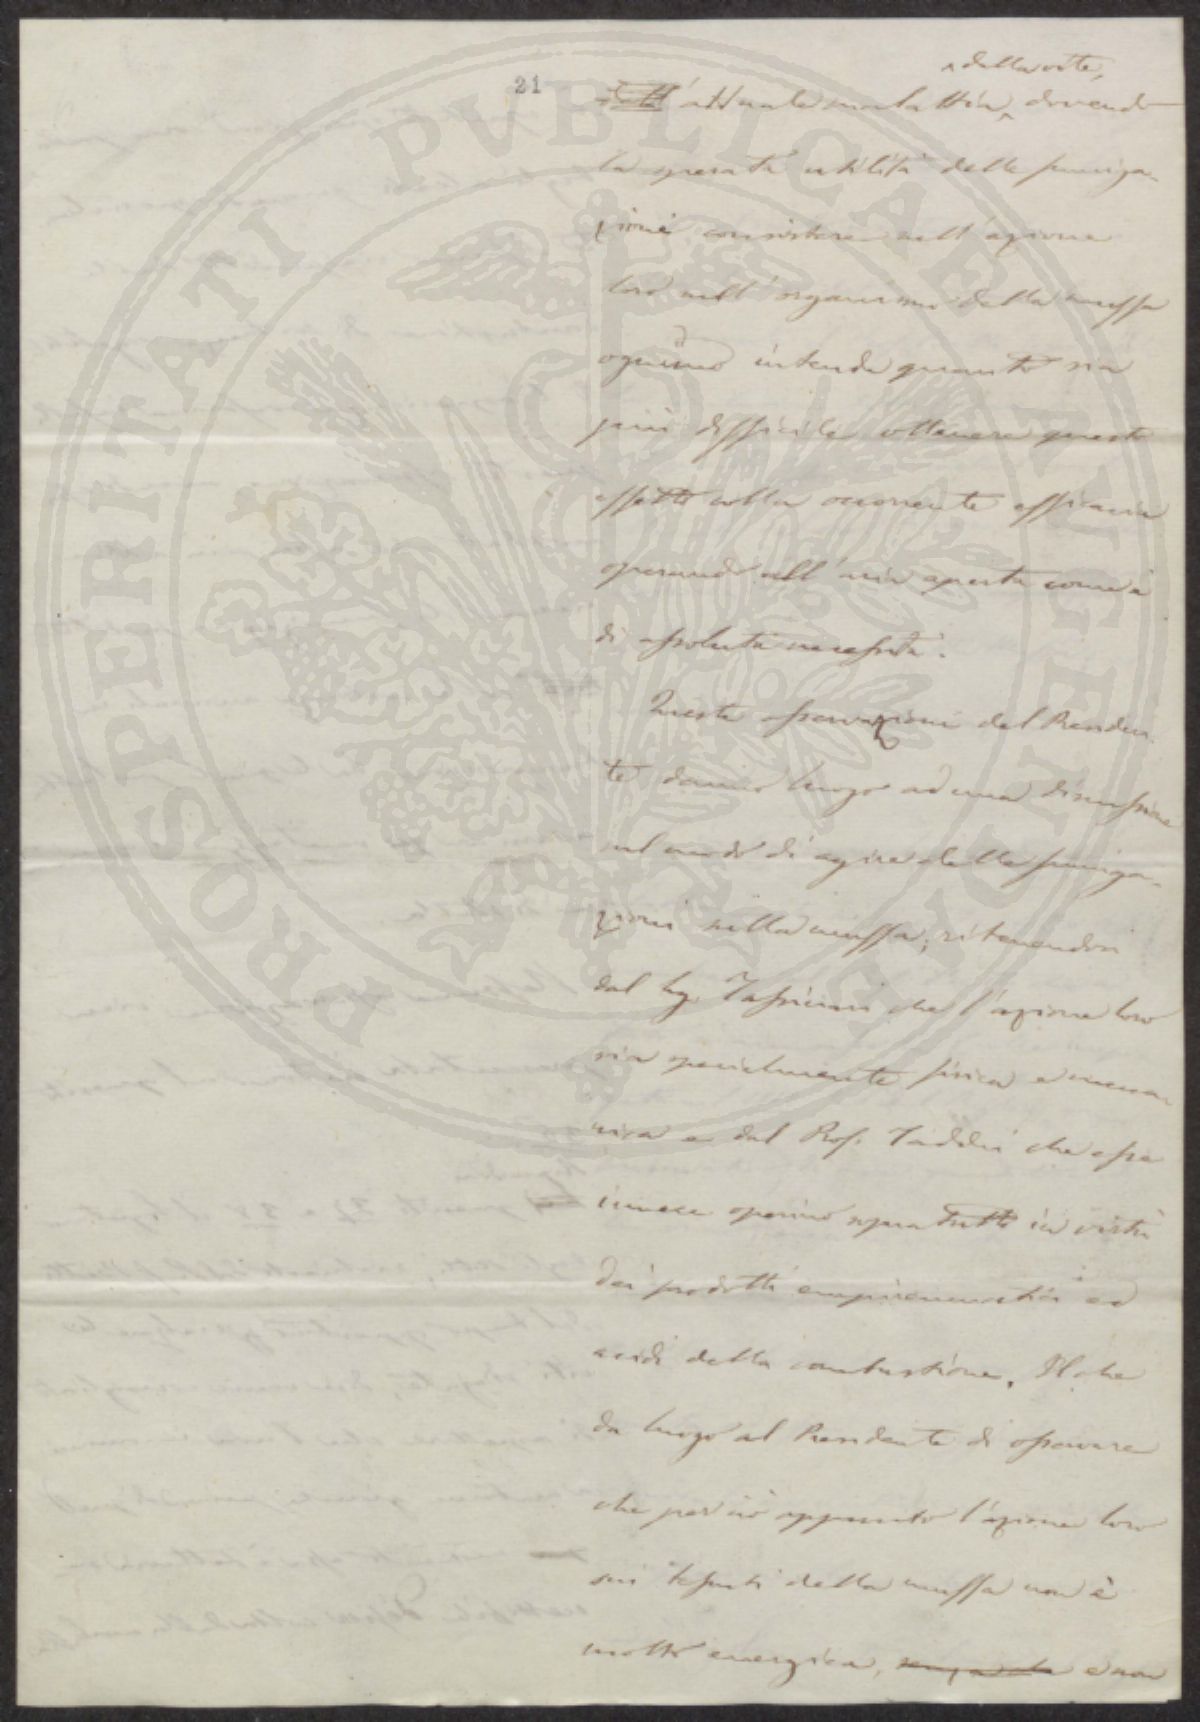 21
della vite,
dell'attuale malattia, dovendo
la sperata utilità delle fumiga-
zioni consistere nell'azione
loro nell'organismo della muffa
ognuno intende quanto sia
più difficile ottenere questo
effetto colla occorrente efficacia
operando all'aria aperta come è
di assoluta necessità.
Queste osservazioni del Presiden-
te danno luogo ad una discussione
sul modo di agire delle fumiga-
zioni sulla muffa, ritenendosi
dal Sig. che l'azione loro
sia specialmente fisica e mecca-
nica e dal Prof. Taddei che esse
invece operino sopratutto in virtù
dei prodotti empireumatici ed
acidi della combustione. Il che
da luogo al Presidente di osservare
che perciò appunto l'azione loro
sui tessuti della muffa non è
molto energica, e non
PROSPERITATI PVBLICAE AVGENDAE